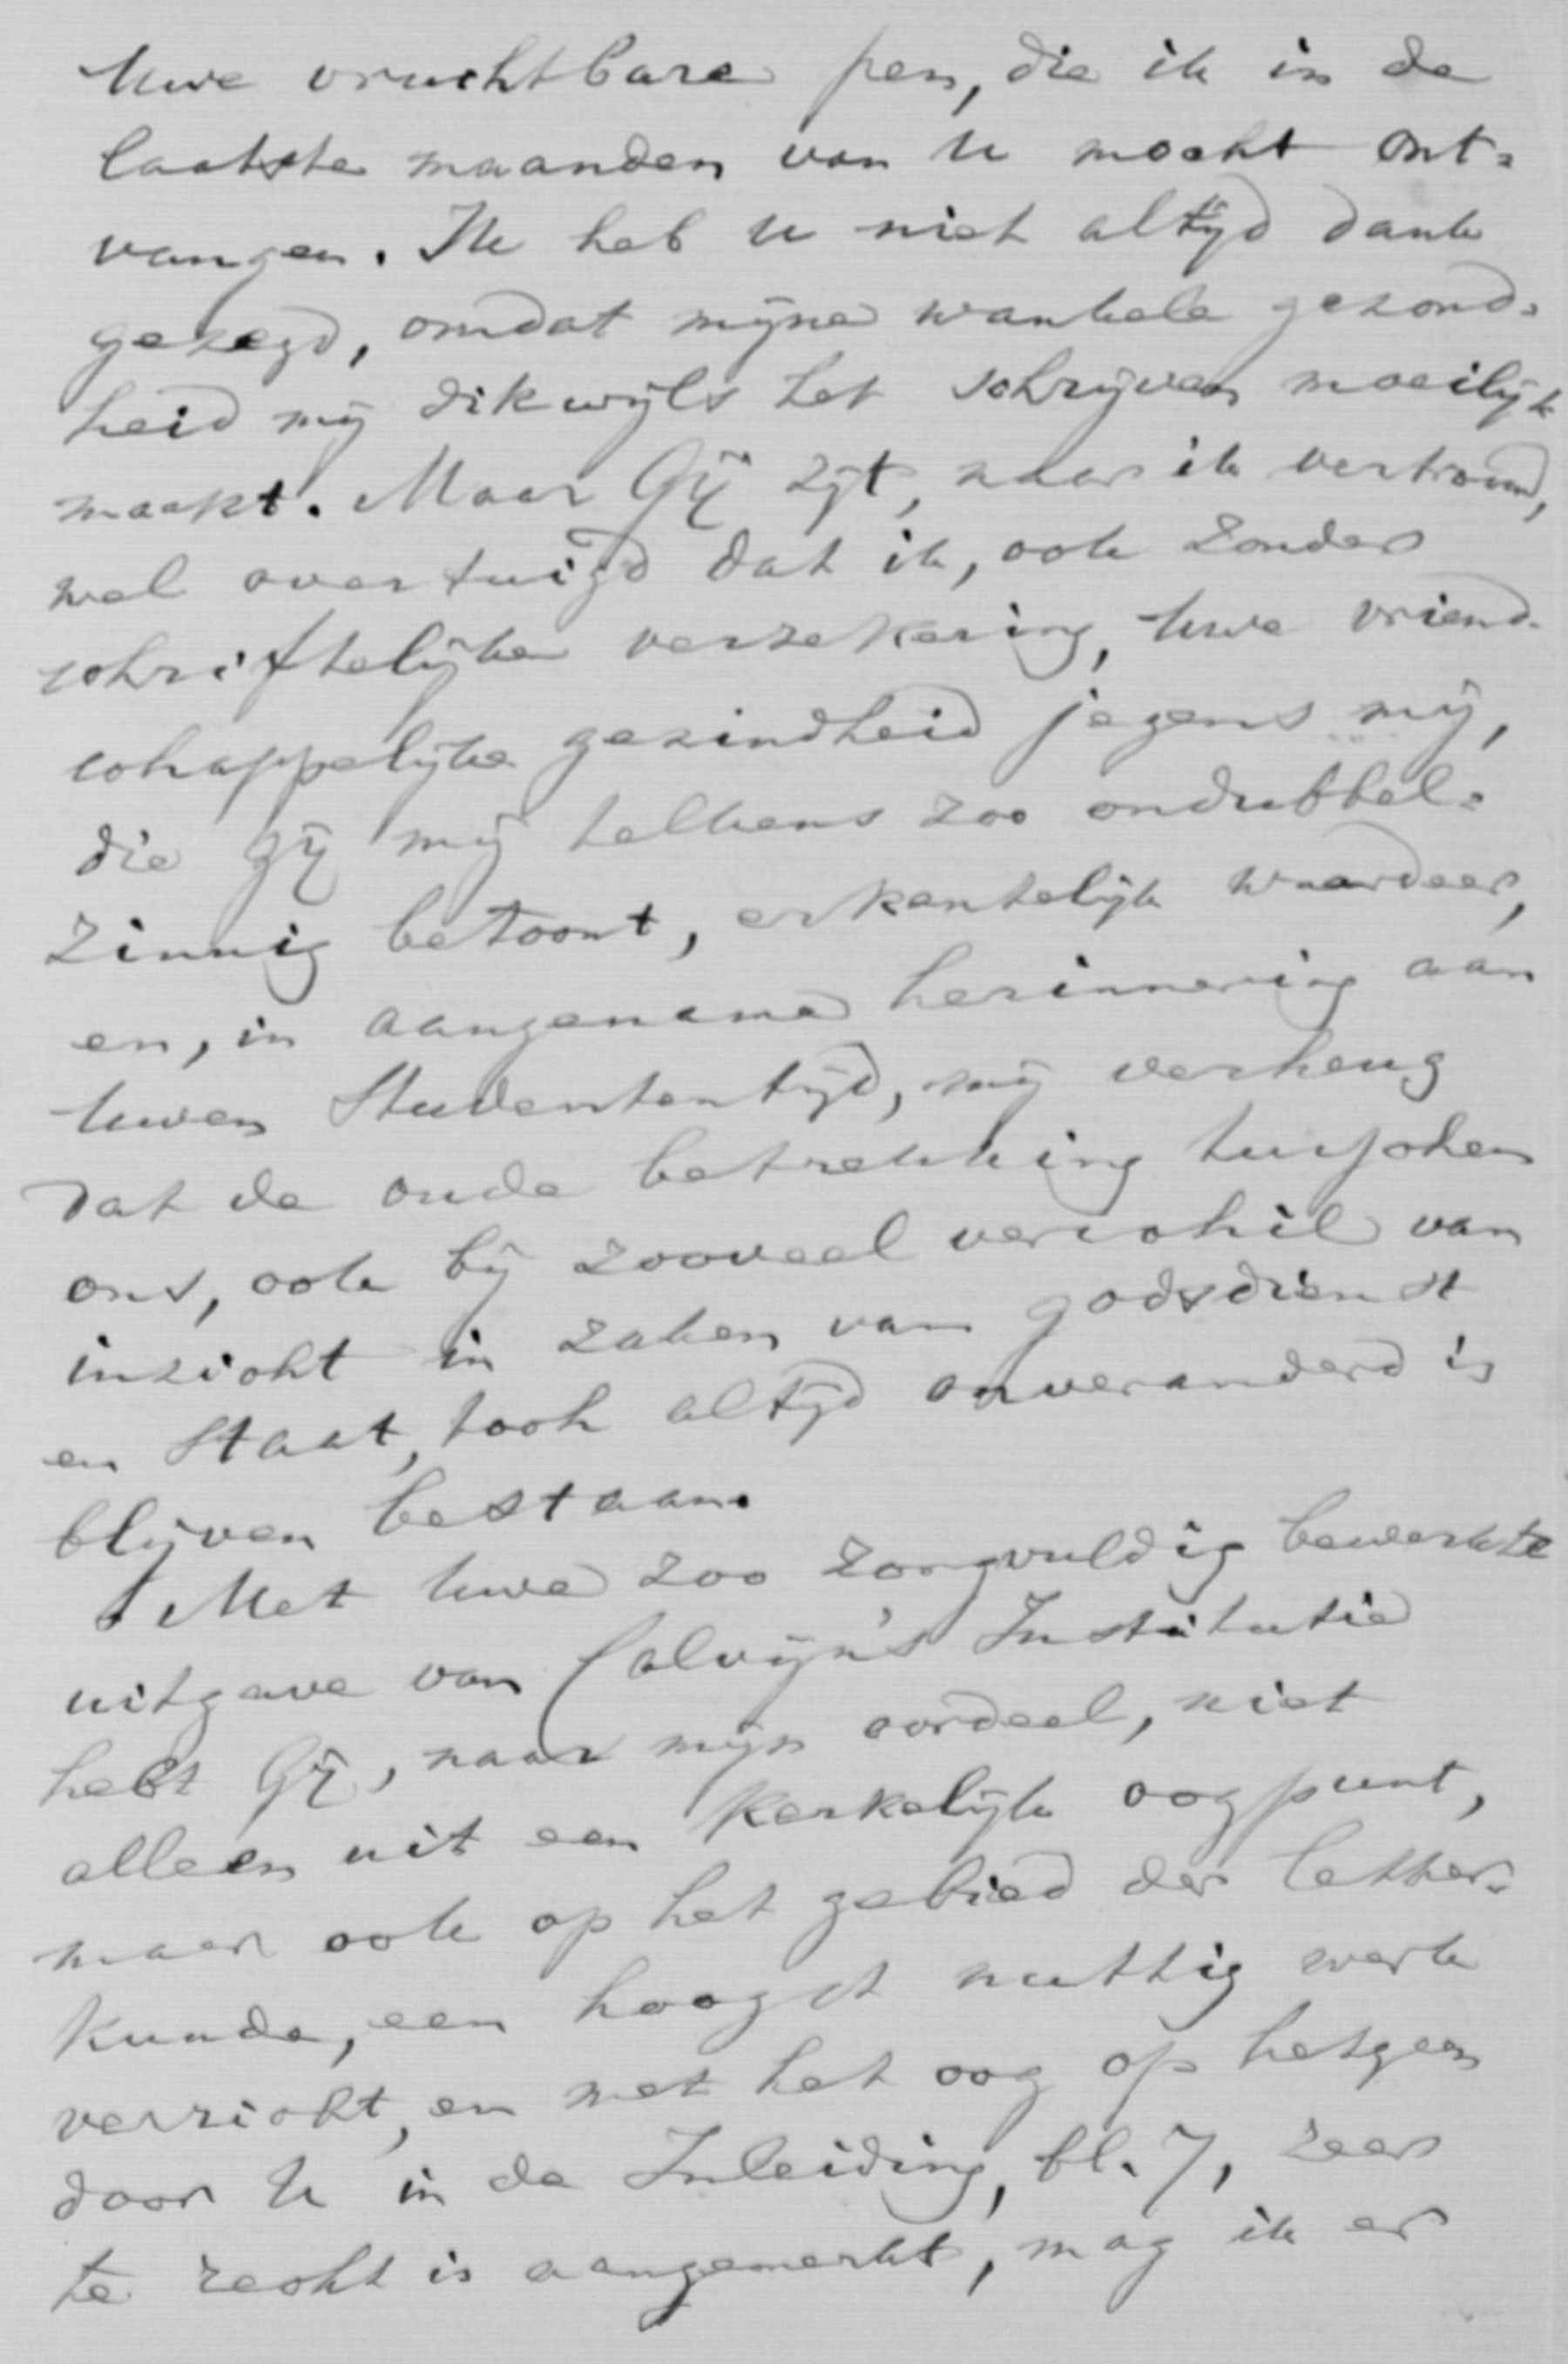 Uwe vruchtbare pen, die ik in de
laatste maanden van U mocht ont=
vangen. Ik heb U niet altijd dank
gezegd, omdat mijne wankele gezond=
heid mij dikwijls het schrijven moeilijk
maakt. Maar Gij zijt, naar ik vertrouw,
wel overtuigd dat ik, ook zonder
schriftelijke verzekering, Uwe vriend-
schappelijke gezindheid jegens mij,
die Gij mij telkens zoo ondubbel=
zinnig betoont, erkentelijk waardeer,
en, in aangename herinnering aan
Uwen Studententijd, mij verheug
dat de oude betrekking tusschen
ons, ook bij zooveel verschil van
inzicht in zaken van godsdienst
en Staat, toch altijd onveranderd is
blijven bestaan.
Met Uwe zoo zorgvuldig bewerkte
uitgave van Calvijn's Institutie
hebt Gij, naar mijn oordeel, niet
alleen uit een kerkelijk oogpunt,
maar ook op het gebied der letter=
kunde, een hoogst nuttig werk
verricht, en met het oog op hetgeen
door U in de Inleiding, bl. 7, zeer
te recht is aangemerkt, mag ik er